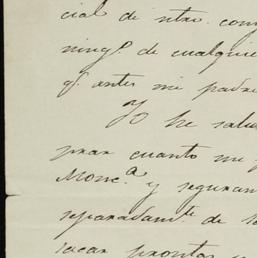 cial de ntro. com
ningo. de cualquie
qe. antes mi padre
Yo he salu
prar cuanto me
Monca. y seguram
separadamte. de
sacar prontas